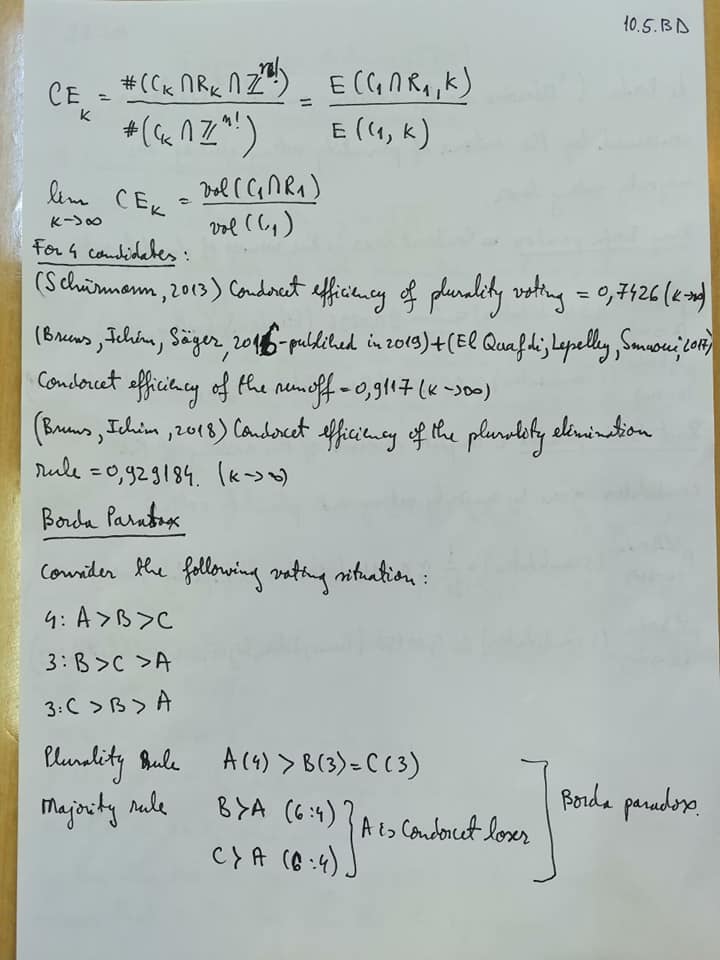 10.5.BD
CE_K = #(C_K ∩ R_K ∩ ℤ^n!) / #(C_K ∩ ℤ^n!) = E(C_1 ∩ R_1, K) / E(C_1, K)
lim K→∞ CE_K = vol(C_1 ∩ R_1) / vol(C_1)
For 4 candidates:
(Schürmann, 2013) Condorcet efficiency of plurality voting = 0,7426 (K→∞)
(Bruns, Ichim, Söger, 2016 - published in 2019) + (El Ouafdi, Lepelley, Smaoui, 2017)
Condorcet efficiency of the runoff = 0,9117 (K→∞)
(Bruns, Ichim, 2018) Condorcet efficiency of the plurality elimination
rule = 0,929184. (K→∞)
Borda Paradox
Consider the following voting situation:
4: A > B > C
3: B > C > A
3: C > B > A
Plurality Rule A(4) > B(3) = C(3)
Majority rule B > A (6:4)
C > A (6:4)
A is Condorcet loser
Borda paradox.